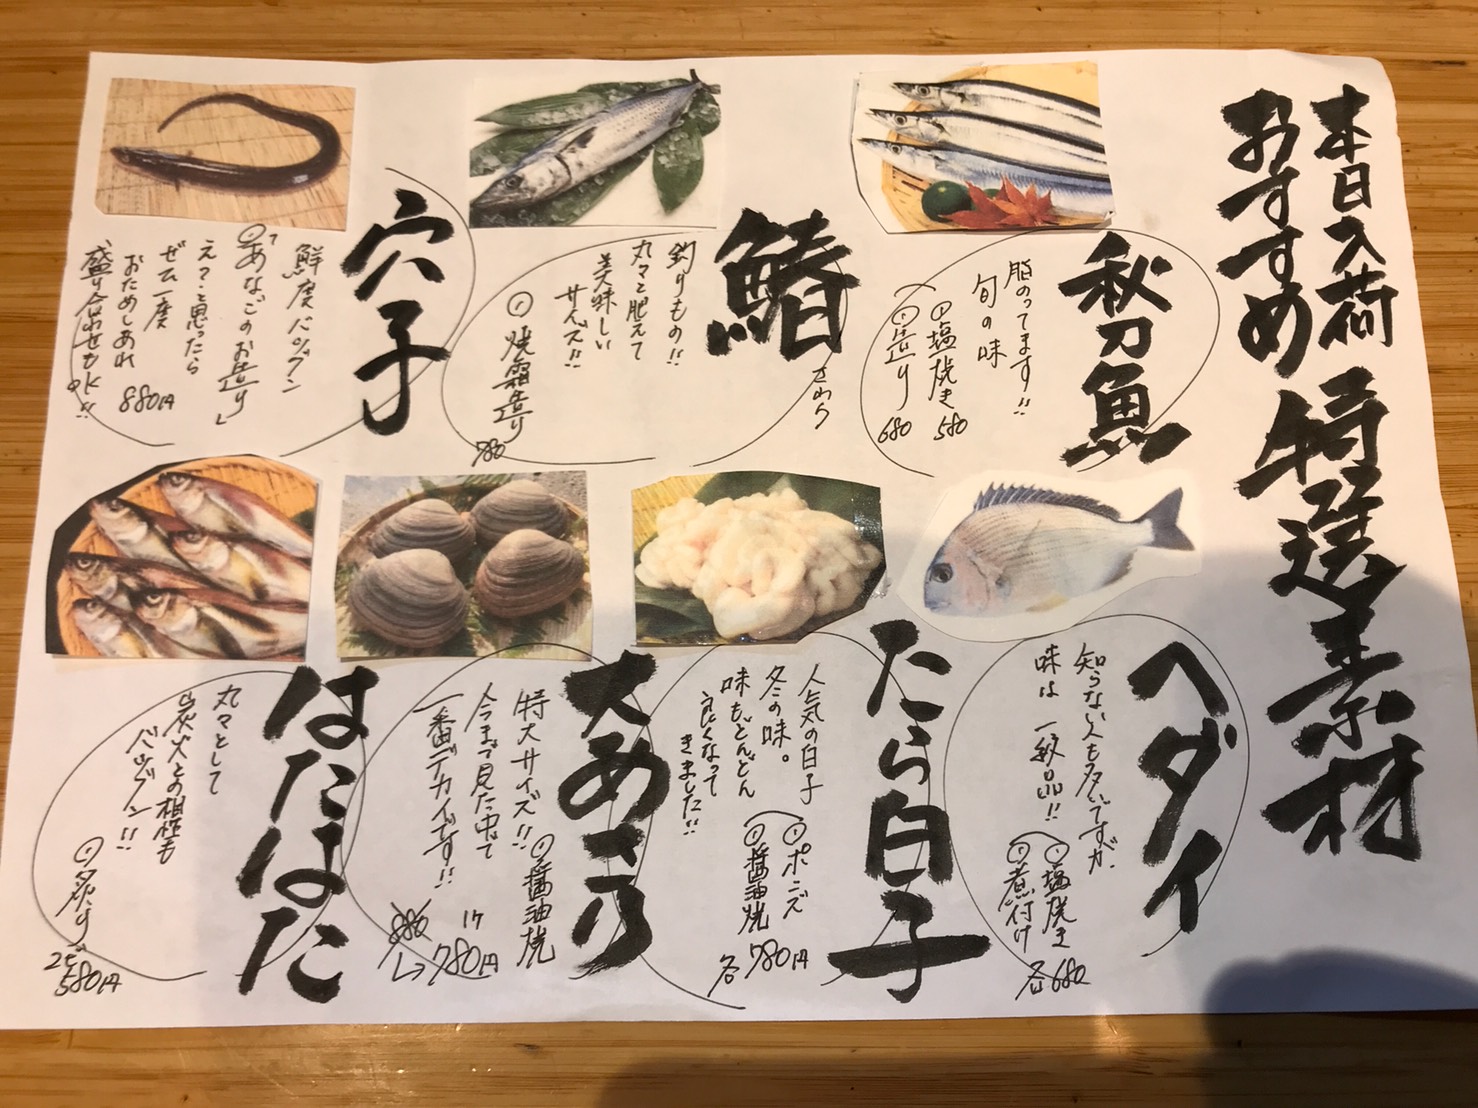 本日入荷
おすすめ
特選素材
秋刀魚
脂のってます!!
旬の味
塩焼き 580
造り 680
鰆
さわら
釣りもの!!
丸々と肥えて
美味しい
サイズ!!
焼霜造り
780
穴子
鮮度バツグン
「あなごのお造り」
え?と思ったら
ぜひ一度
おためしあれ 880円
盛り合わせもOK!!
ヘダイ
知らない人も多いですが、
味は一級品!!
塩焼き
煮付け
各680
たら白子
人気の白子
冬の味。
味もどんどん
良くなって
きました!!
ポンズ
醤油焼
各780円
大あさり
特大サイズ!!
今まで見た中で
一番デカイです!!
醤油焼
1ケ
880
780円
はたはた
丸々として
炭火との相性も
バツグン!!
炙り
2ビ
580円